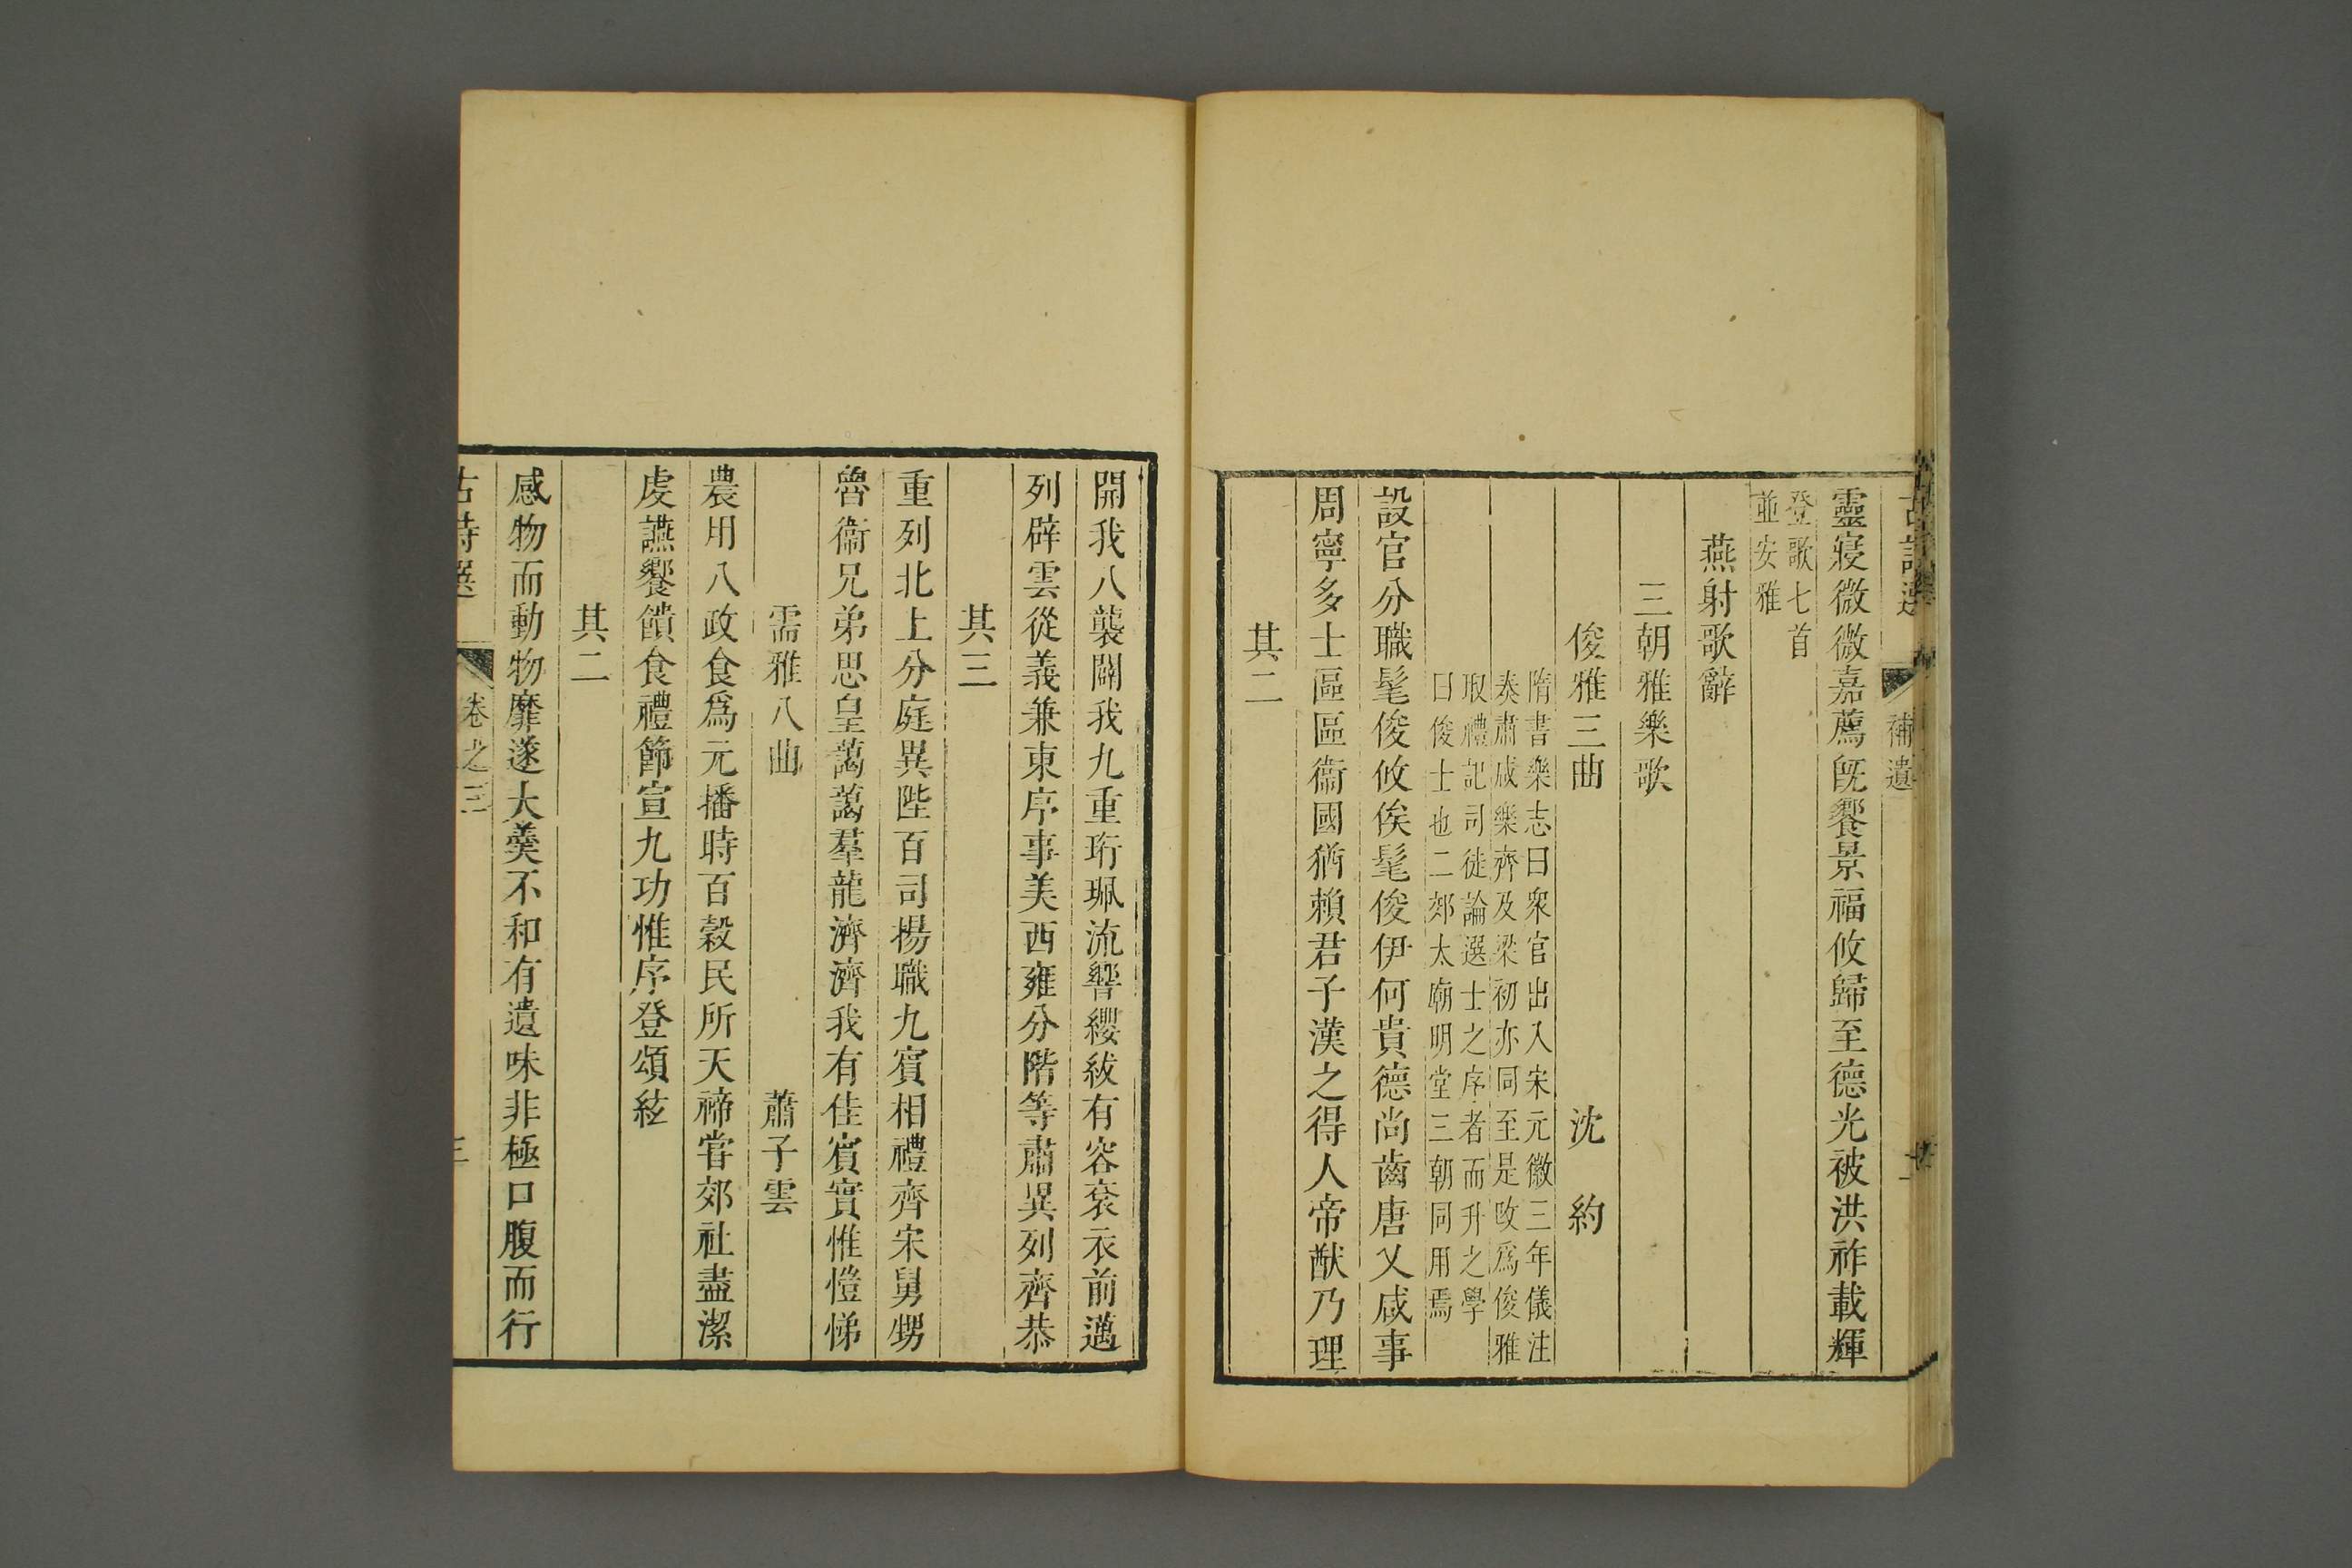 補遺
靈寢微微嘉薦旣饗景福攸歸至德光被洪祚載輝
登歌七首
並安雅
燕射歌辭
三朝雅樂歌
俊雅三曲 沈約
隋書樂志曰衆官出入宋元徽三年儀注
奏肅咸樂齊及梁初亦同至是改爲俊雅
取禮記司徒論選士之序者而升之學
曰俊士也二郊太廟明堂三朝同用焉
設官分職髦俊攸俟髦俊伊何貴德尚齒唐乂咸事
周寧多士區區衞國猶賴君子漢之得人帝猷乃理
其二
開我八襲闢我九重珩珮流響纓紱有容袞衣前邁
列辟雲從義兼東序事美西雍分階等肅異列齊恭
其三
重列北上分庭異陛百司揚職九賓相禮齊宋舅甥
魯衞兄弟思皇藹藹羣龍濟濟我有佳賓實惟愷悌
需雅八曲 蕭子雲
農用八政食爲元播時百穀民所天禘嘗郊社盡潔
虔讌饗饋食禮節宣九功惟序登頌絃
其二
感物而動物靡遂大羹不和有遺味非極口腹而行
古詩選 卷之三 三